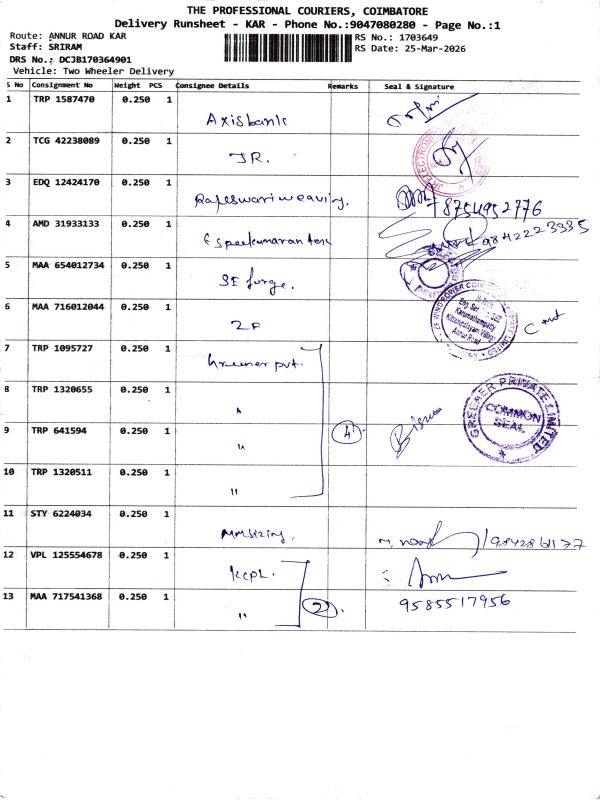 THE PROFESSIONAL COURIERS, COIMBATORE
Delivery Runsheet - KAR - Phone No.:9047080280 - Page No.:1
Route: ANNUR ROAD KAR RS No.: 1703649
Staff: SRIRAM RS Date: 25-Mar-2026
DRS No.: DCJB170364901
Vehicle: Two Wheeler Delivery
S No Consignment No Weight PCS Consignee Details Remarks Seal & Signature
1 TRP 1587470 0.250 1 Axisbank
2 TCG 42238089 0.250 1 JR.
3 EDQ 12424170 0.250 1 Rajeswari weaving. 8754952776
4 AMD 31933133 0.250 1 9842223335
5 MAA 654012734 0.250 1 SE forge.
6 MAA 716012044 0.250 1 ZF
7 TRP 1095727 0.250 1 Greener pvt.
8 TRP 1320655 0.250 1 "
GREENER PRIVATE LIMITED
COMMON
SEAL
9 TRP 641594 0.250 1 " 4
10 TRP 1320511 0.250 1 "
11 STY 6224034 0.250 1 MM sizing.
12 VPL 125554678 0.250 1 KCPL.
13 MAA 717541368 0.250 1 " 2 9585517956